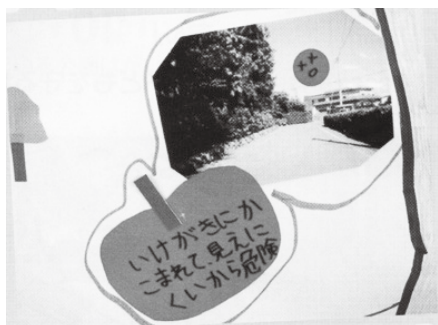 いけがきにか
こまれて、見えに
くいから危険